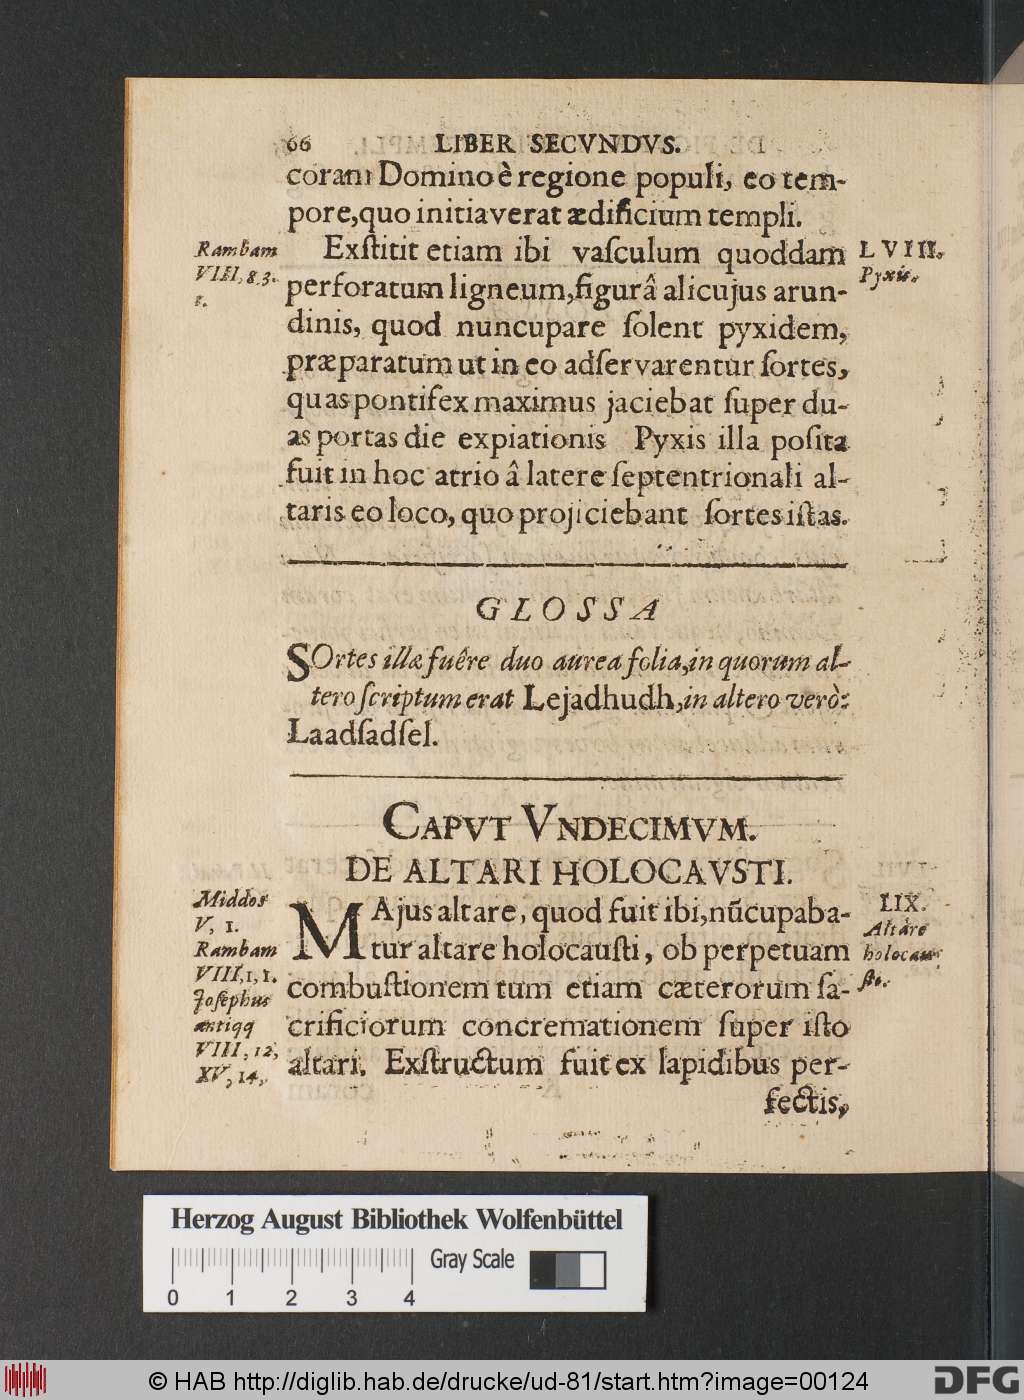 66 LIBER SECVNDVS.
coram Domino è regione populi, eo tem-
pore, quo initiaverat ædificium templi.
Rambam
VIII, 8. 3.
Exſtitit etiam ibi vaſculum quoddam
LVIII.
Pyxis.
perforatum ligneum, figurâ alicujus arun-
dinis, quod nuncupare ſolent pyxidem,
præparatum ut in eo adſervarentur ſortes,
quas pontifex maximus jaciebat ſuper du-
as portas die expiationis Pyxis illa poſita
fuit in hoc atrio â latere ſeptentrionali al-
taris eo loco, quo projiciebant ſortes iſtas.
GLOSSA
SOrtes illæ fuêre duo aurea folia, in quorum al-
tero ſcriptum erat Lejadhudh, in altero verò:
Laadſadſel.
CAPVT VNDECIMVM.
DE ALTARI HOLOCAVSTI.
Middos
V, 1.
Rambam
VIII, 1, 1.
Joſephus
antiqq
VIII, 12,
XV, 14,
MAjus altare, quod fuit ibi, nũcupaba-
tur altare holocauſti, ob perpetuam
combuſtionem tum etiam cæterorum ſa-
crificiorum concremationem ſuper iſto
altari. Exſtructum fuit ex lapidibus per-
LIX.
Altare
holocau-
ſti.
fectis,
Herzog August Bibliothek Wolfenbüttel
Gray Scale
0 1 2 3 4
© HAB http://diglib.hab.de/drucke/ud-81/start.htm?image=00124
DFG